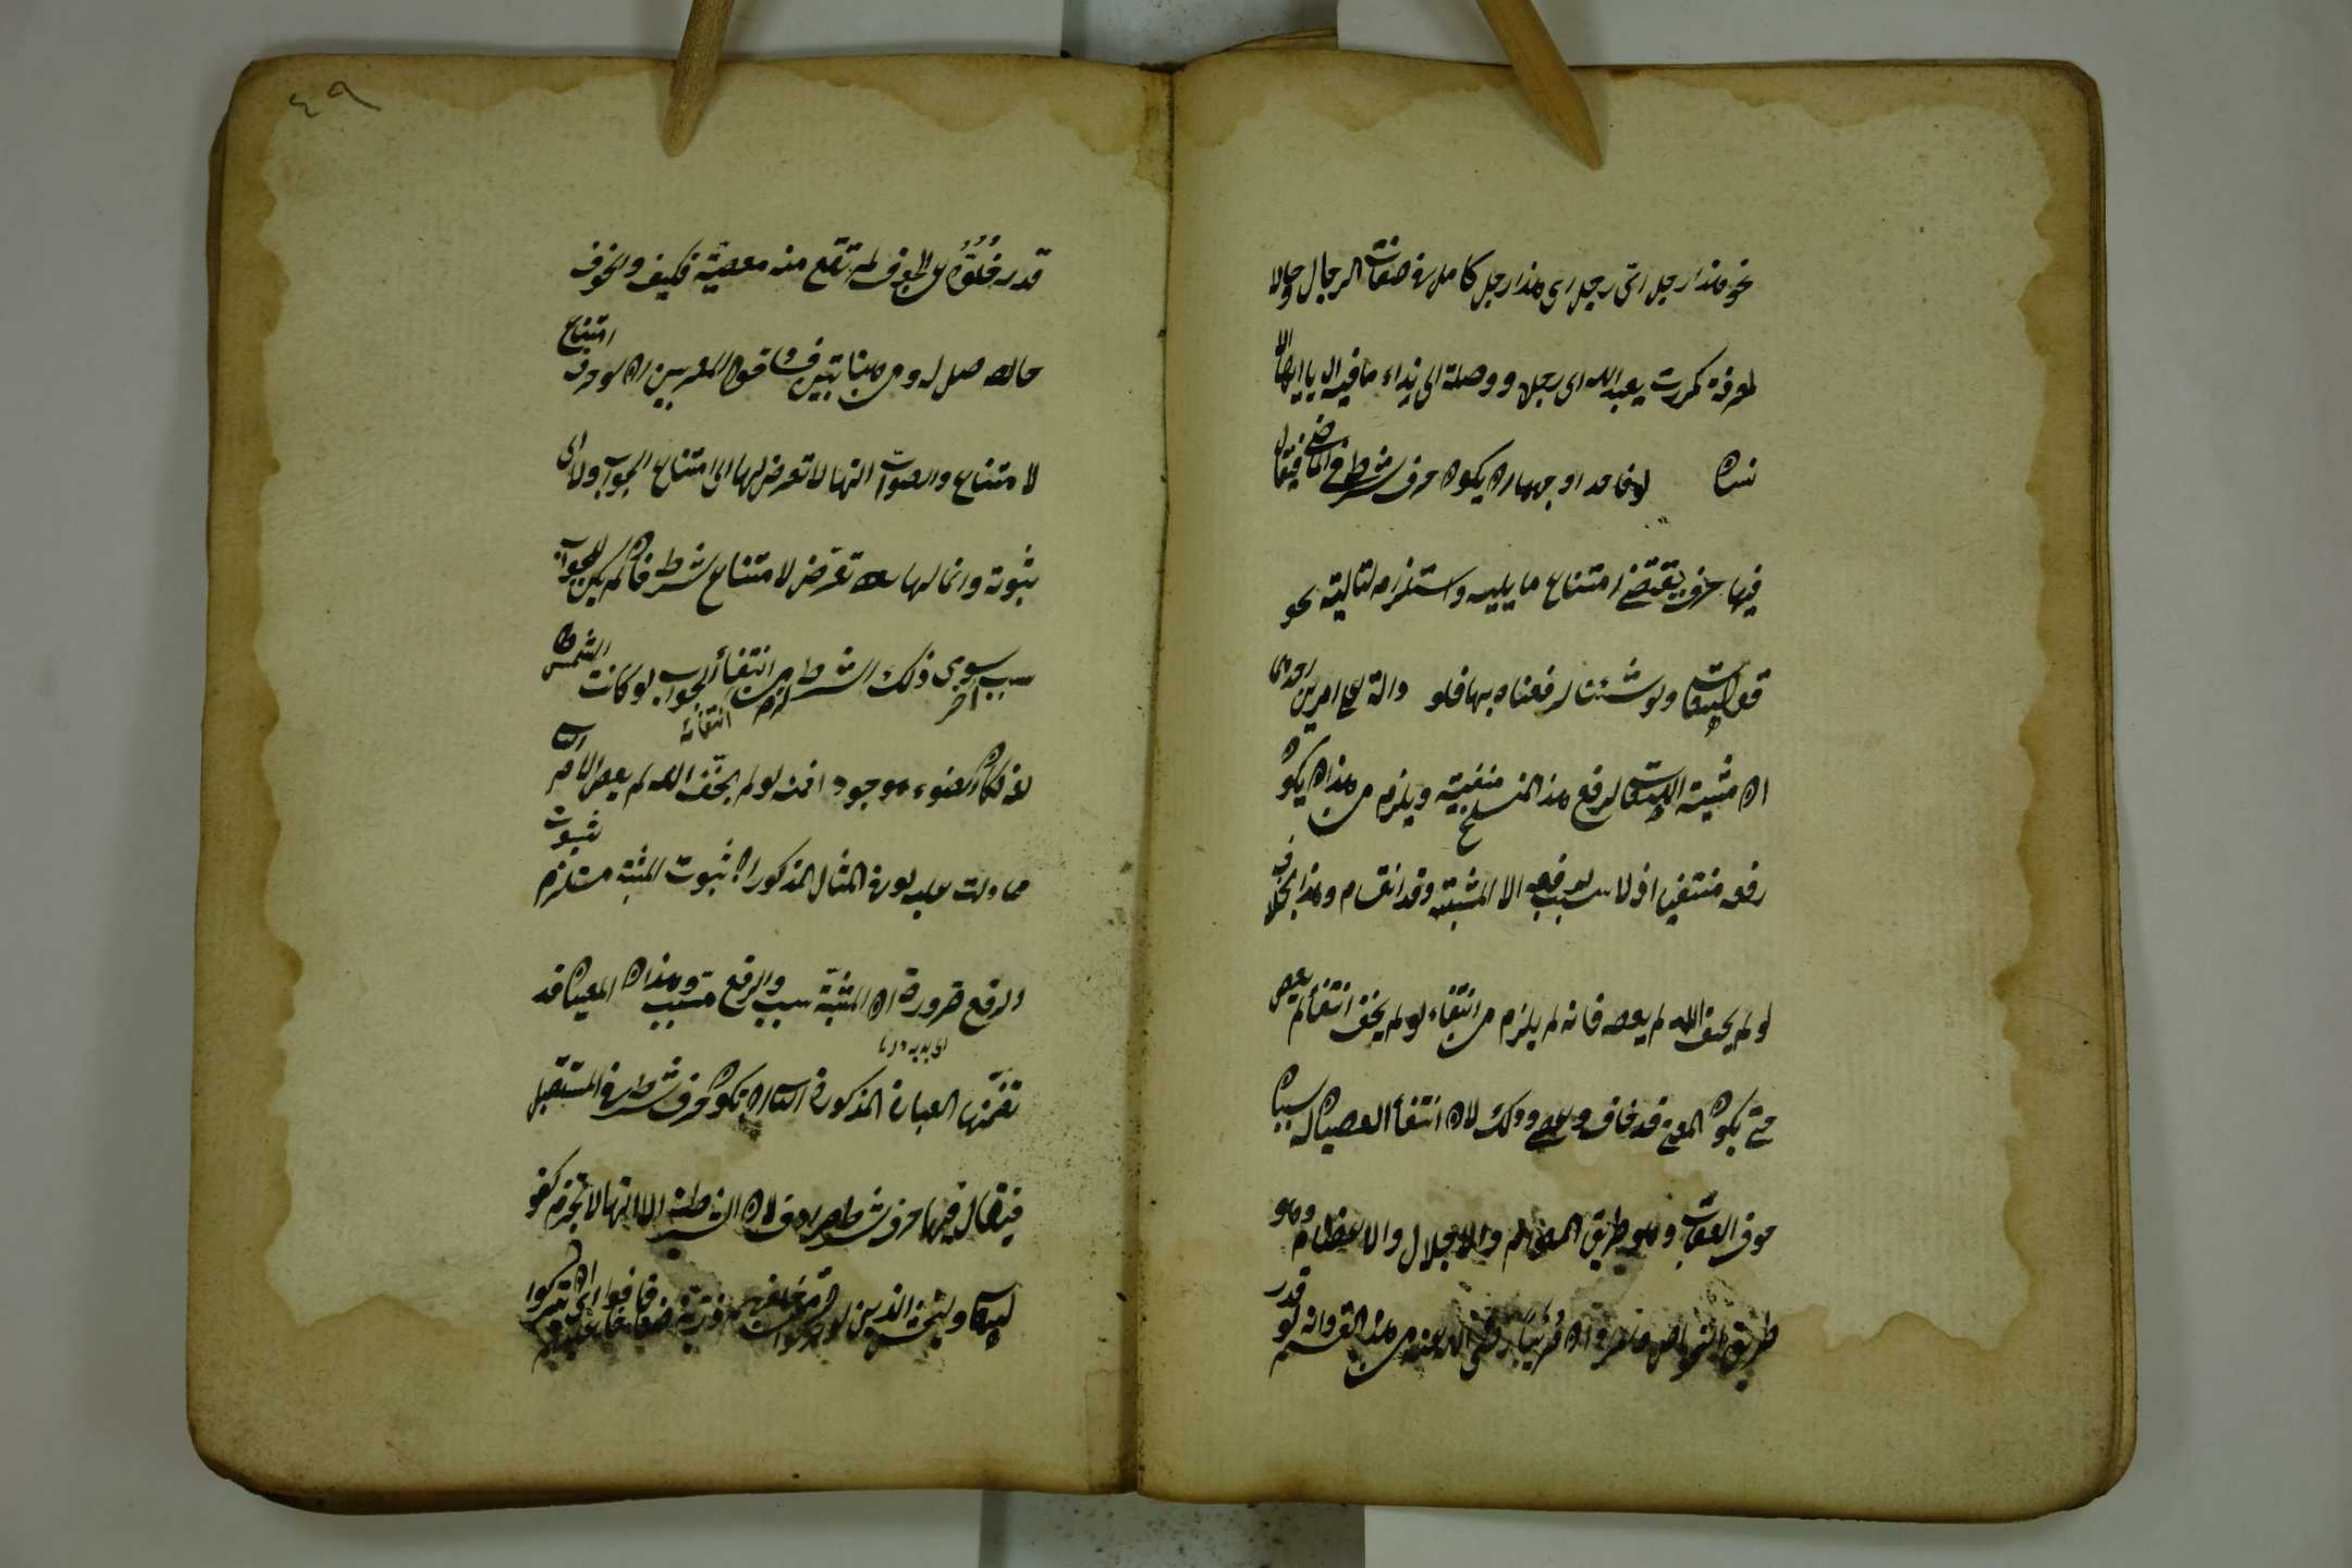 نحو هذا رجل اىّ رجل اى هذا رجل كامل فى صفات الرجال وحالا
لمعرفة كمررت بعبد الله اى رجل ووصلة الى نداء ما فيه ال يا ايها الا
نسان لو فاحد اوجهها ان يكون حرف شرط فى الماضى فيقال
فيها حرف يقتضى امتناع ما يليه واستلزامه لتاليه نحو
قوله تعالى ولو شئنا لرفعناه بها فلو دالة على امرين احدهما
ان مشية الله تعالى لرفع هذا المنسلخ منفية ويلزم من هذا ان يكون
رفعه منتفيا اذ لا سبب لرفعه الا المشية وقد انقسام وهذا بخلاف
لو لم يخف الله لم يعصه فانه لم يلزم من انتفاء لو لم يخف انتفاء لم يعص
حتى يكون المعنى قد خاف وعصى وذلك لان انتفاء العصيان له سببان
خوف العقاب وهو طريق العوام والاجلال والاعظام وهو
طريق الخواص والمراد ان صهيبا رضى الله عنه من هذا القسم وانه لو قدر
٤٩
قدر خلوّه عن الخوف لم تقع منه معصية فكيف والخوف
حاصل له ومن هنا تبين فساد قول المعربين ان لو حرف امتناع
لامتناع والصواب انها لا تعرض لها الى امتناع الجواب ولا الى
ثبوته وانما لها تعرّض لامتناع شرط فان لم يكن للجواب
سبب آخر سوى ذلك الشرط لزم من انتفائه انتفاء الجواب لو كانت الشمس
موجود انه لو لم يخف الله لم يعص الامر
مما دلت عليه لو فى المثال المذكور ان ثبوت المشية مستلزم ثبوت
الرفع ضرورة ان المشية سبب والرفع مسبب وهذان المعنيان قد
تضمنها العبارة المذكورة الثانى ان تكون حرف شرط فى المستقبل
فيقال فيها حرف شرط مرادف لان الشرطية الا انها لا تجزم كقو
له تعالى وليخش الذين لو تركوا من خلفهم ذرية ضعافا خافوا عليهم اى ان تتركوا